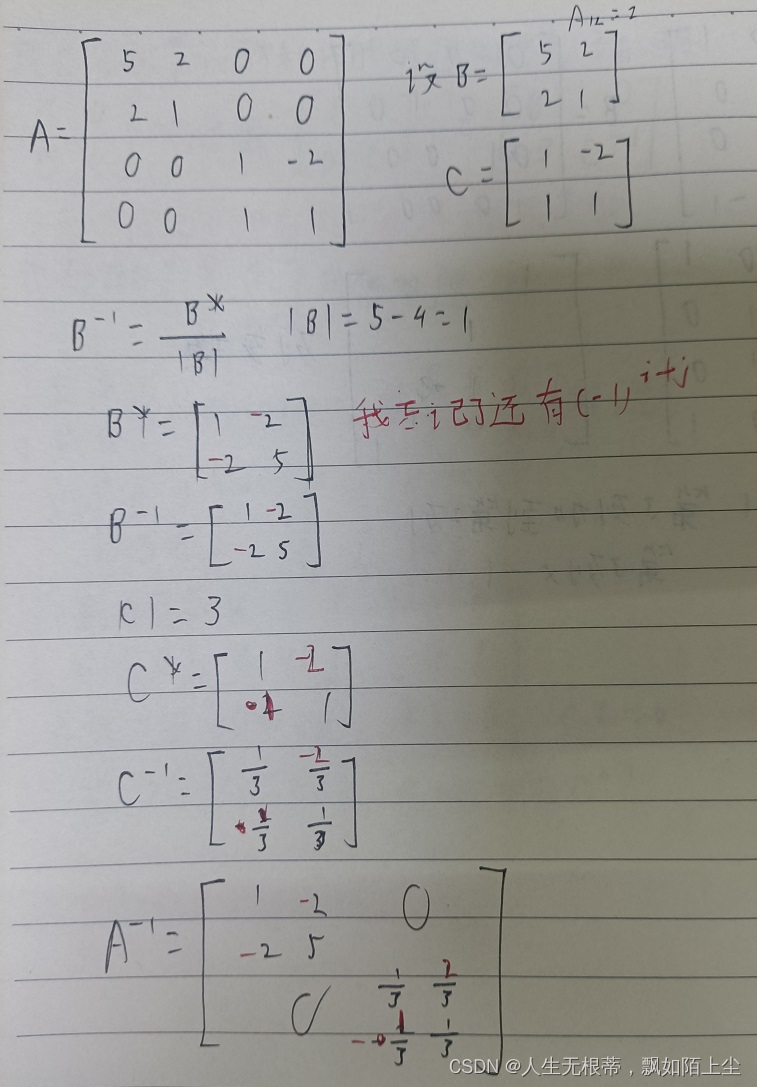 A₁₂=2
A= [ 5 2 0 0
2 1 0 0
0 0 1 -2
0 0 1 1 ]
记 B= [ 5 2
2 1 ]
C= [ 1 -2
1 1 ]
B⁻¹= B*/|B| |B|=5-4=1
B*= [ 1 -2
-2 5 ]
我忘记了还有(-1)^{i+j}
B⁻¹= [ 1 -2
-2 5 ]
|C|=3
C*= [ 1 -2
1 ]
C⁻¹= [ 1/3 -2/3
1/3 ]
A⁻¹= [ 1 -2 0
-2 5
0 1/3 2/3
-1/3 1/3 ]
CSDN @人生无根蒂，飘如陌上尘